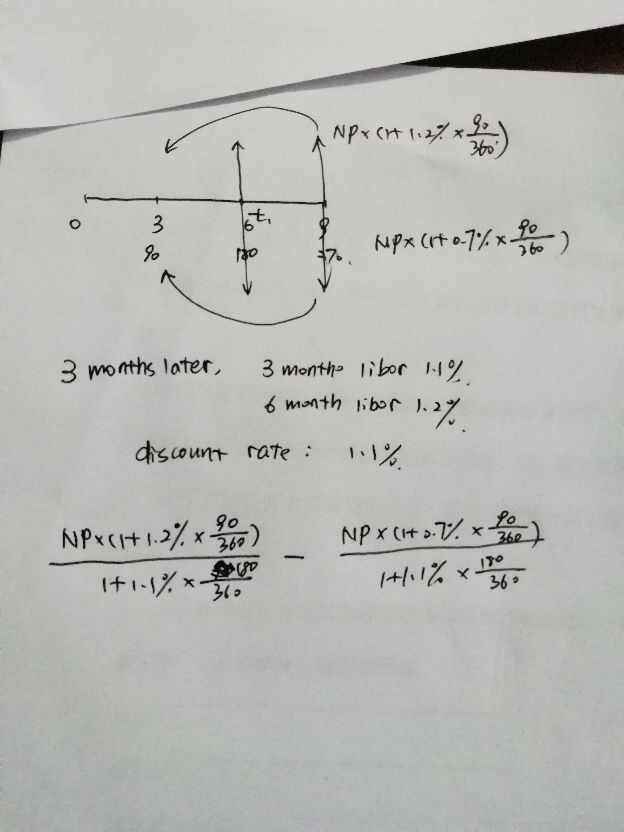 NP×(1+1.2%×90/360)
0 3 6 t₁ 9
90 180 270.
NP×(1+0.7%×90/360)
3 months later, 3 months libor 1.1%.
6 month libor 1.2%.
discount rate: 1.1%.
NP×(1+1.2%×90/360) / 1+1.1%×180/360 − NP×(1+0.7%×90/360) / 1+1.1%×180/360